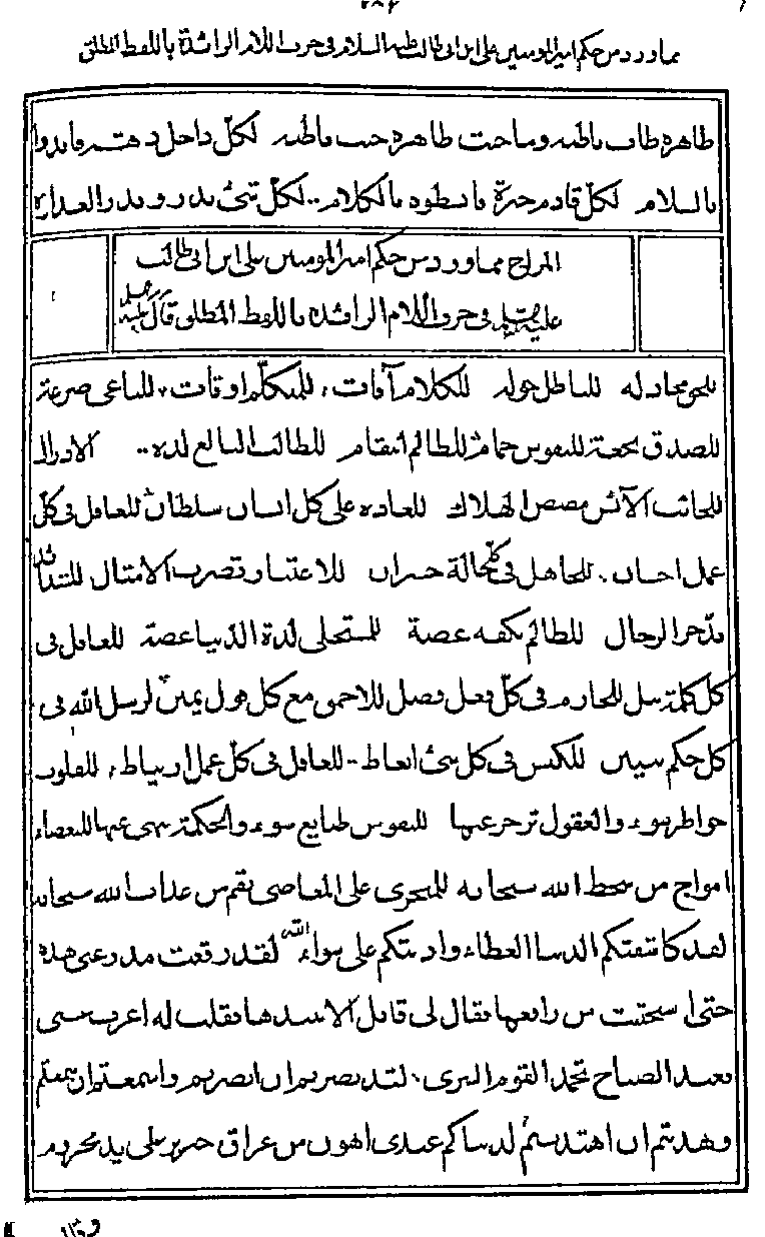 ٢٨٤
مما ورد من حكم امير المومنين علي ابن ابي طالب عليه السلام في حرف اللام الزائدة باللفظ المطلق
ظاهره طاب باطنه وما خبث ظاهره خبث باطنه لكل داخل دهشة فابدوا
بالسلام لكل قادم حيرة فابسطوه بالكلام لكل شيء بذر وبذر العداوة
المزاح مما ورد من حكم امير المومنين علي ابن ابي طالب
عليه السلم في حرف اللام الزائدة باللفظ المطلق قال عليه السلم
للحق دولة للباطل جولة للكلام آفات للمتكلم اوقات للباغي صرعة
للصدق نجعة للنفوس حمام للظالم انتقام للطالب البالغ لذة الادراك
للخائب الآئس مضض الهلاك للعادة على كل انسان سلطان للعاقل في كل
عمل احسان للجاهل في كل حالة خسران للاعتبار تضرب الامثال للشدائد
تذخر الرجال للظالم بكفه عضة للمستحلي لذة الدنيا غصة للعاقل في
كل كلمة نبل للحازم في كل فعل فضل للاحمق مع كل قول يمين لرسل الله في
كل حكم تبيين للكيس في كل شيء اتعاظ للعاقل في كل عمل ارتياض للقلوب
خواطر سوء والعقول تزجر عنها للنفوس طبايع سوء والحكمة تنهى عنها
امواج من سخط الله سبحانه للمجترى على المعاصي نقم من عذاب الله سبحانه
لقد كاشفتكم الدنيا الغطاء واذنتكم على سواء الله لقد رقعت مدرعتي هذه
حتى استحييت من راقعها فقال لي قائل الا تنبذها فقلت له اعزب عني
فعند الصباح يحمد القوم السرى لقد بصرتم ان ابصرتم واسمعتم ان سمعتم
وهديتم ان اهتديتم لدنياكم عندي اهون من عراق خنزير على يد مجذوم
وقال